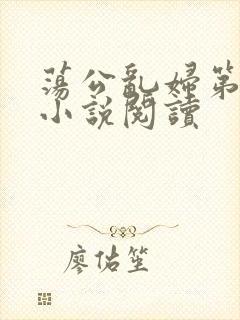 蕩公亂婦第
小說閱讀
廖佑笙